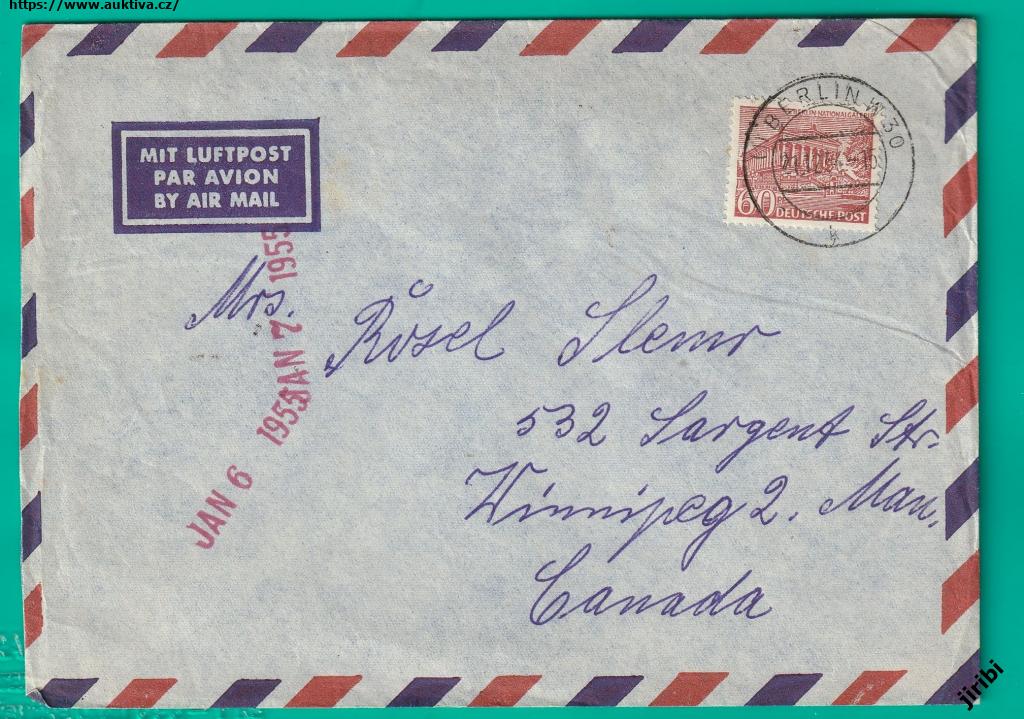 https://www.auktiva.cz/
MIT LUFTPOST
PAR AVION
BY AIR MAIL
BERLIN W 30
NATIONALGALERIE
60
DEUTSCHE POST
JAN 7 1955
JAN 6 1955
Mrs. Rösel Slemr
532 Sargent Str.
Winnipeg 2. Man.
Canada
jiribi